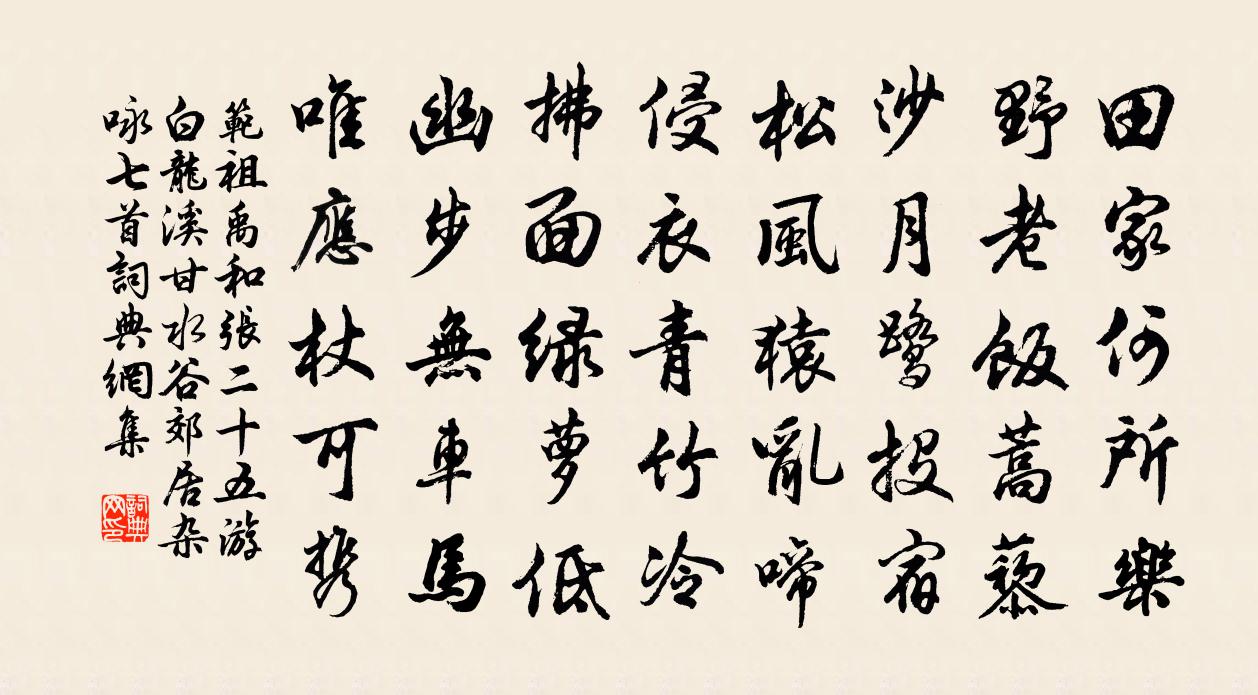 田家何所樂
野老飯蒿藜
沙月鷺投宿
松風猿亂啼
侵衣青竹冷
拂面緑萝低
幽步無車馬
唯應杖可携
範祖禹和張二十五游
白龍溪甘水谷郊居杂
咏七首詞典網集
詞典网印